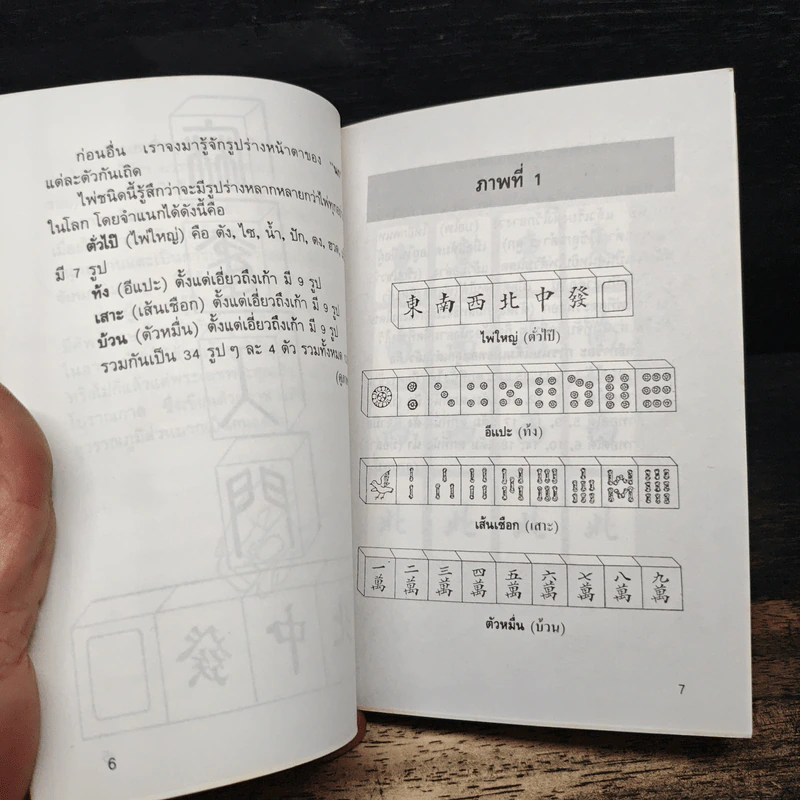 ก่อนอื่น เราจงมารู้จักรูปร่างหน้าตาของ
แต่ละตัวกันเถิด
ไพ่ชนิดนี้รู้สึกว่าจะมีรูปร่างหลากหลายกว่าไพ่
ในโลก โดยจำแนกได้ดังนี้คือ
ตั่วไป๊ (ไพ่ใหญ่) คือ ตัง, ไซ, น้ำ, ปัก, ตง, ฮวด,
มี 7 รูป
ท้ง (อีแปะ) ตั้งแต่เอี่ยวถึงเก้า มี 9 รูป
เสาะ (เส้นเชือก) ตั้งแต่เอี่ยวถึงเก้า มี 9 รูป
บ้วน (ตัวหมื่น) ตั้งแต่เอี่ยวถึงเก้า มี 9 รูป
รวมกันเป็น 34 รูป ๆ ละ 4 ตัว รวมทั้งหมด
6
ภาพที่ 1
東 南 西 北 中 發
ไพ่ใหญ่ (ตั่วไป๊)
อีแปะ (ท้ง)
เส้นเชือก (เสาะ)
一萬 二萬 三萬 四萬 五萬 六萬 七萬 八萬 九萬
ตัวหมื่น (บ้วน)
7